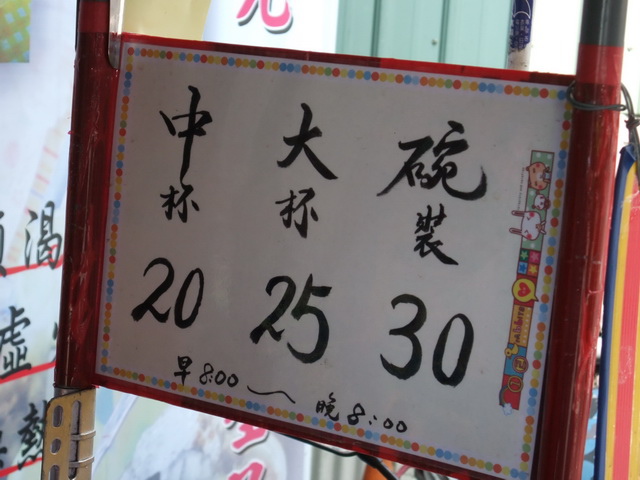 中杯 大杯 碗裝
20 25 30
早8:00～晚8:00
渴
虛
熱